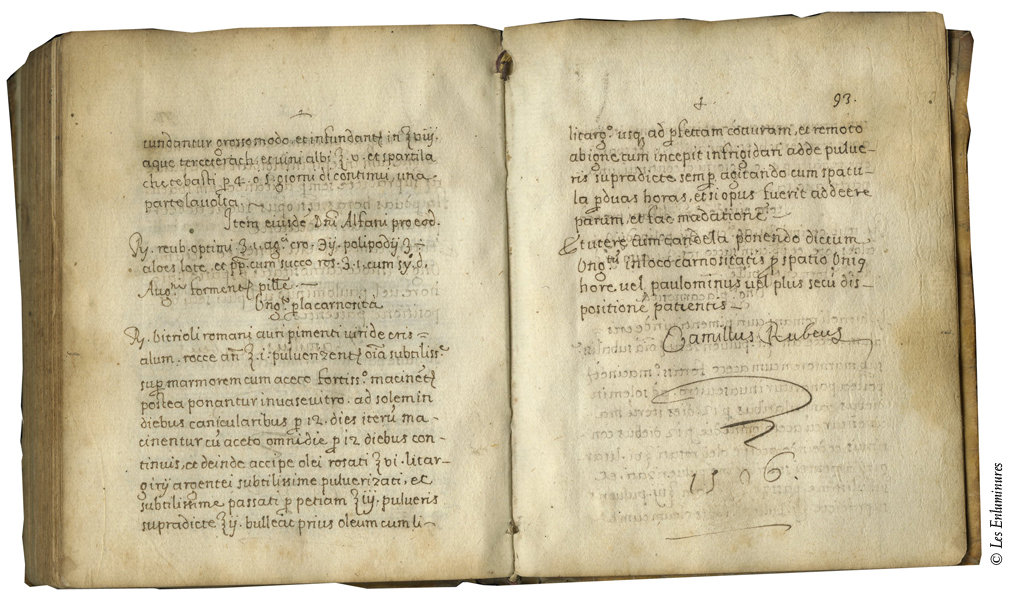 tundantur grosso modo, et infundantʳ in ʒ viij.
aque terceterach, et vini albi ʒ v. et si partila
che te basti p̱ 4. o 5. giorni di continuo, una
parte la volta.
Item eiusdē Dnī Alfani pro eod.
℞. reub. optimi ʒ.1. agᶜⁱ cro. ʒij. polipodij ʒ
aloes lote, et pp̄. cum succo ros. ʒ.1. cum sy. d.
Augⁿⁱ formentʳ pille.
Ungᵗ. p̱ la carnosità
℞. bitrioli romani auripimenti viride eris =
alum. rocce añ ʒ.i. pulverizentʳ oīa subtiliss̄ᵉ
sup̱ marmorem cum aceto fortissᵒ. macinetʳ
postea ponantur in vase vitro. ad solem in
diebus canicularibus p̱ 12. dies iterū ma-
cinentur cū aceto omni die p̱ 12 diebus con-
tinuis, et deinde accipe olei rosati ʒ vi. litar-
girij argentei subtilissime pulverizati, et
subtilissime passati p̱ petiam ʒ iij. pulveris
supradicte ʒ ij. bulleat prius oleum cum li-
93.
litargᵒ. usq̨ ad p̱fettam cotturam, et remoto
ab igne cum incepit infrigidari adde pulve-
ris supradicte semp̱ agitando cum spatu-
la p̱ duas horas, et si opus fuerit addere
parum, et fac madationē.
Et utere cum candela ponendo dictum
Ungᵗᵘ in loco carnositatis p̱ spatio Uniq̨
hore vel paulo minus vel plus secū dis-
positionē patientis
Camillus Rubeus
1506.
© Les Enluminures